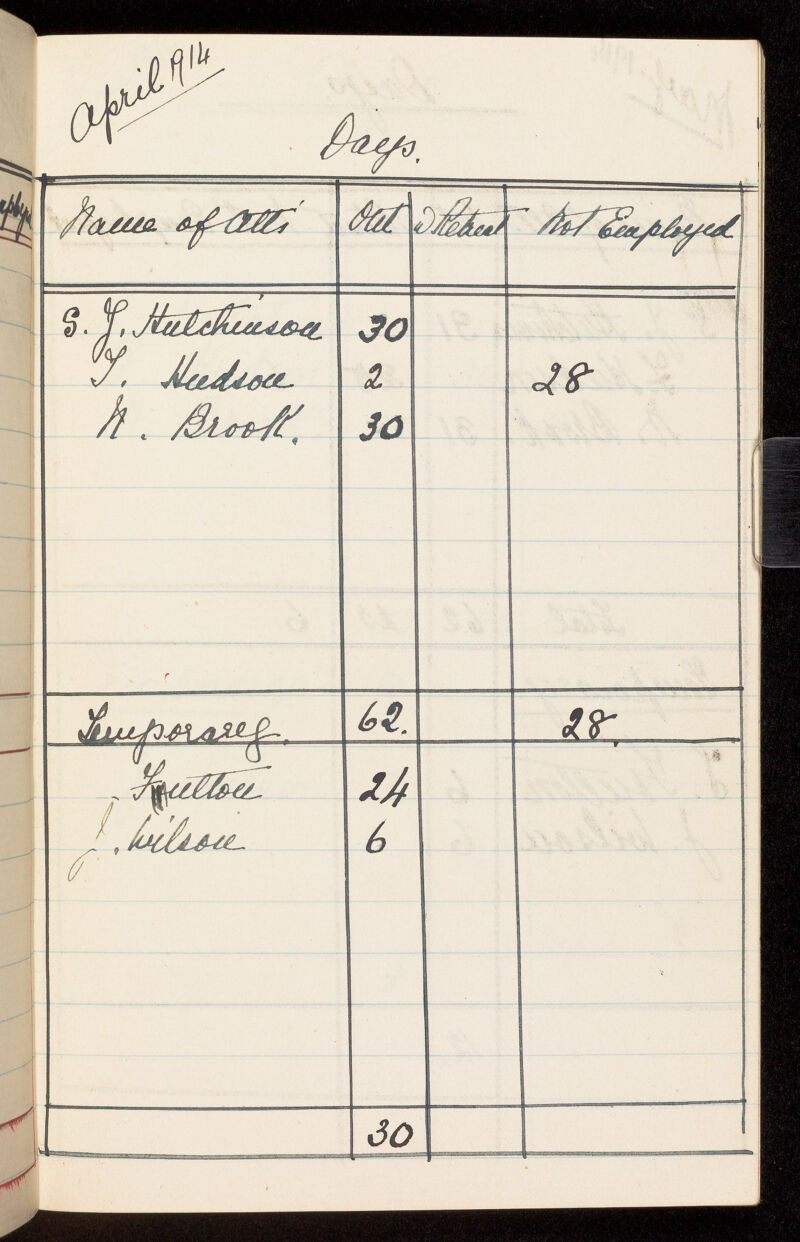 April 1914
Days.
Name of Atts Out Retreat Not Employed
S. J. Hutchinson 30
T. Hudson 2 28
N. Brook. 30
Temporary. 62. 28.
Fulton 24
J. Wilson 6
30